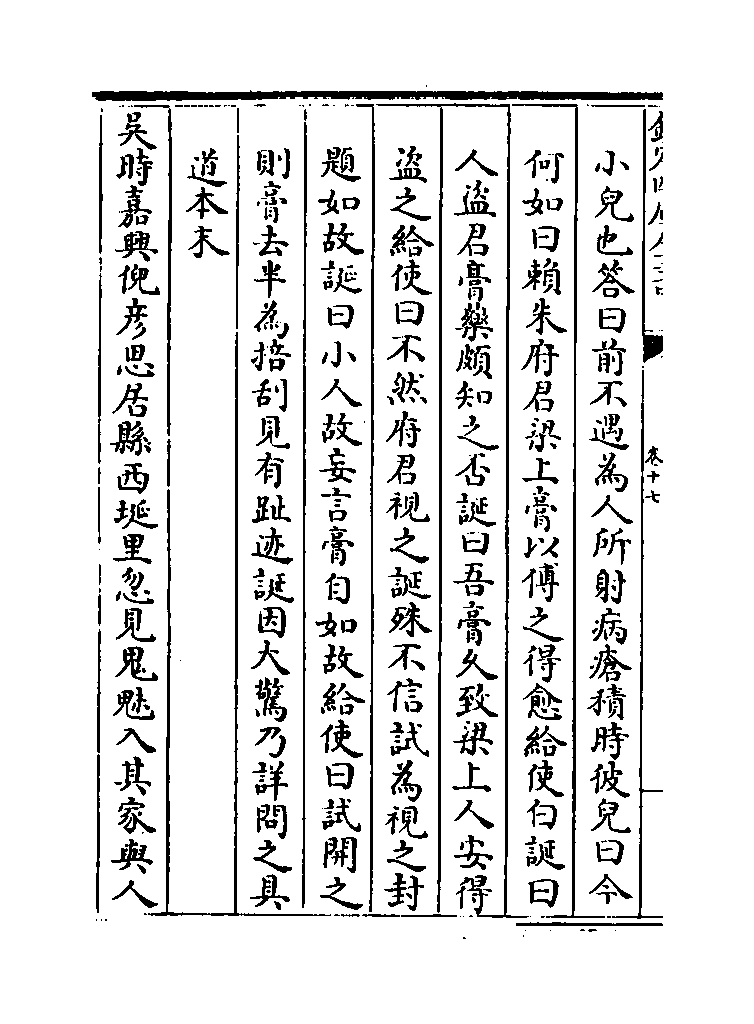 卷十七
小兒也答曰前不遇為人所射病瘡積時彼兒曰今
何如曰賴朱府君梁上膏以傅之得愈給使白誕曰
人盜君膏藥頗知之否誕曰吾膏久致梁上人安得
盜之給使曰不然府君視之誕殊不信試為視之封
題如故誕曰小人故妄言膏自如故給使曰試開之
則膏去半為掊刮見有趾迹誕因大驚乃詳問之具
道本末
吳時嘉興倪彦思居縣西埏里忽見鬼魅入其家與人